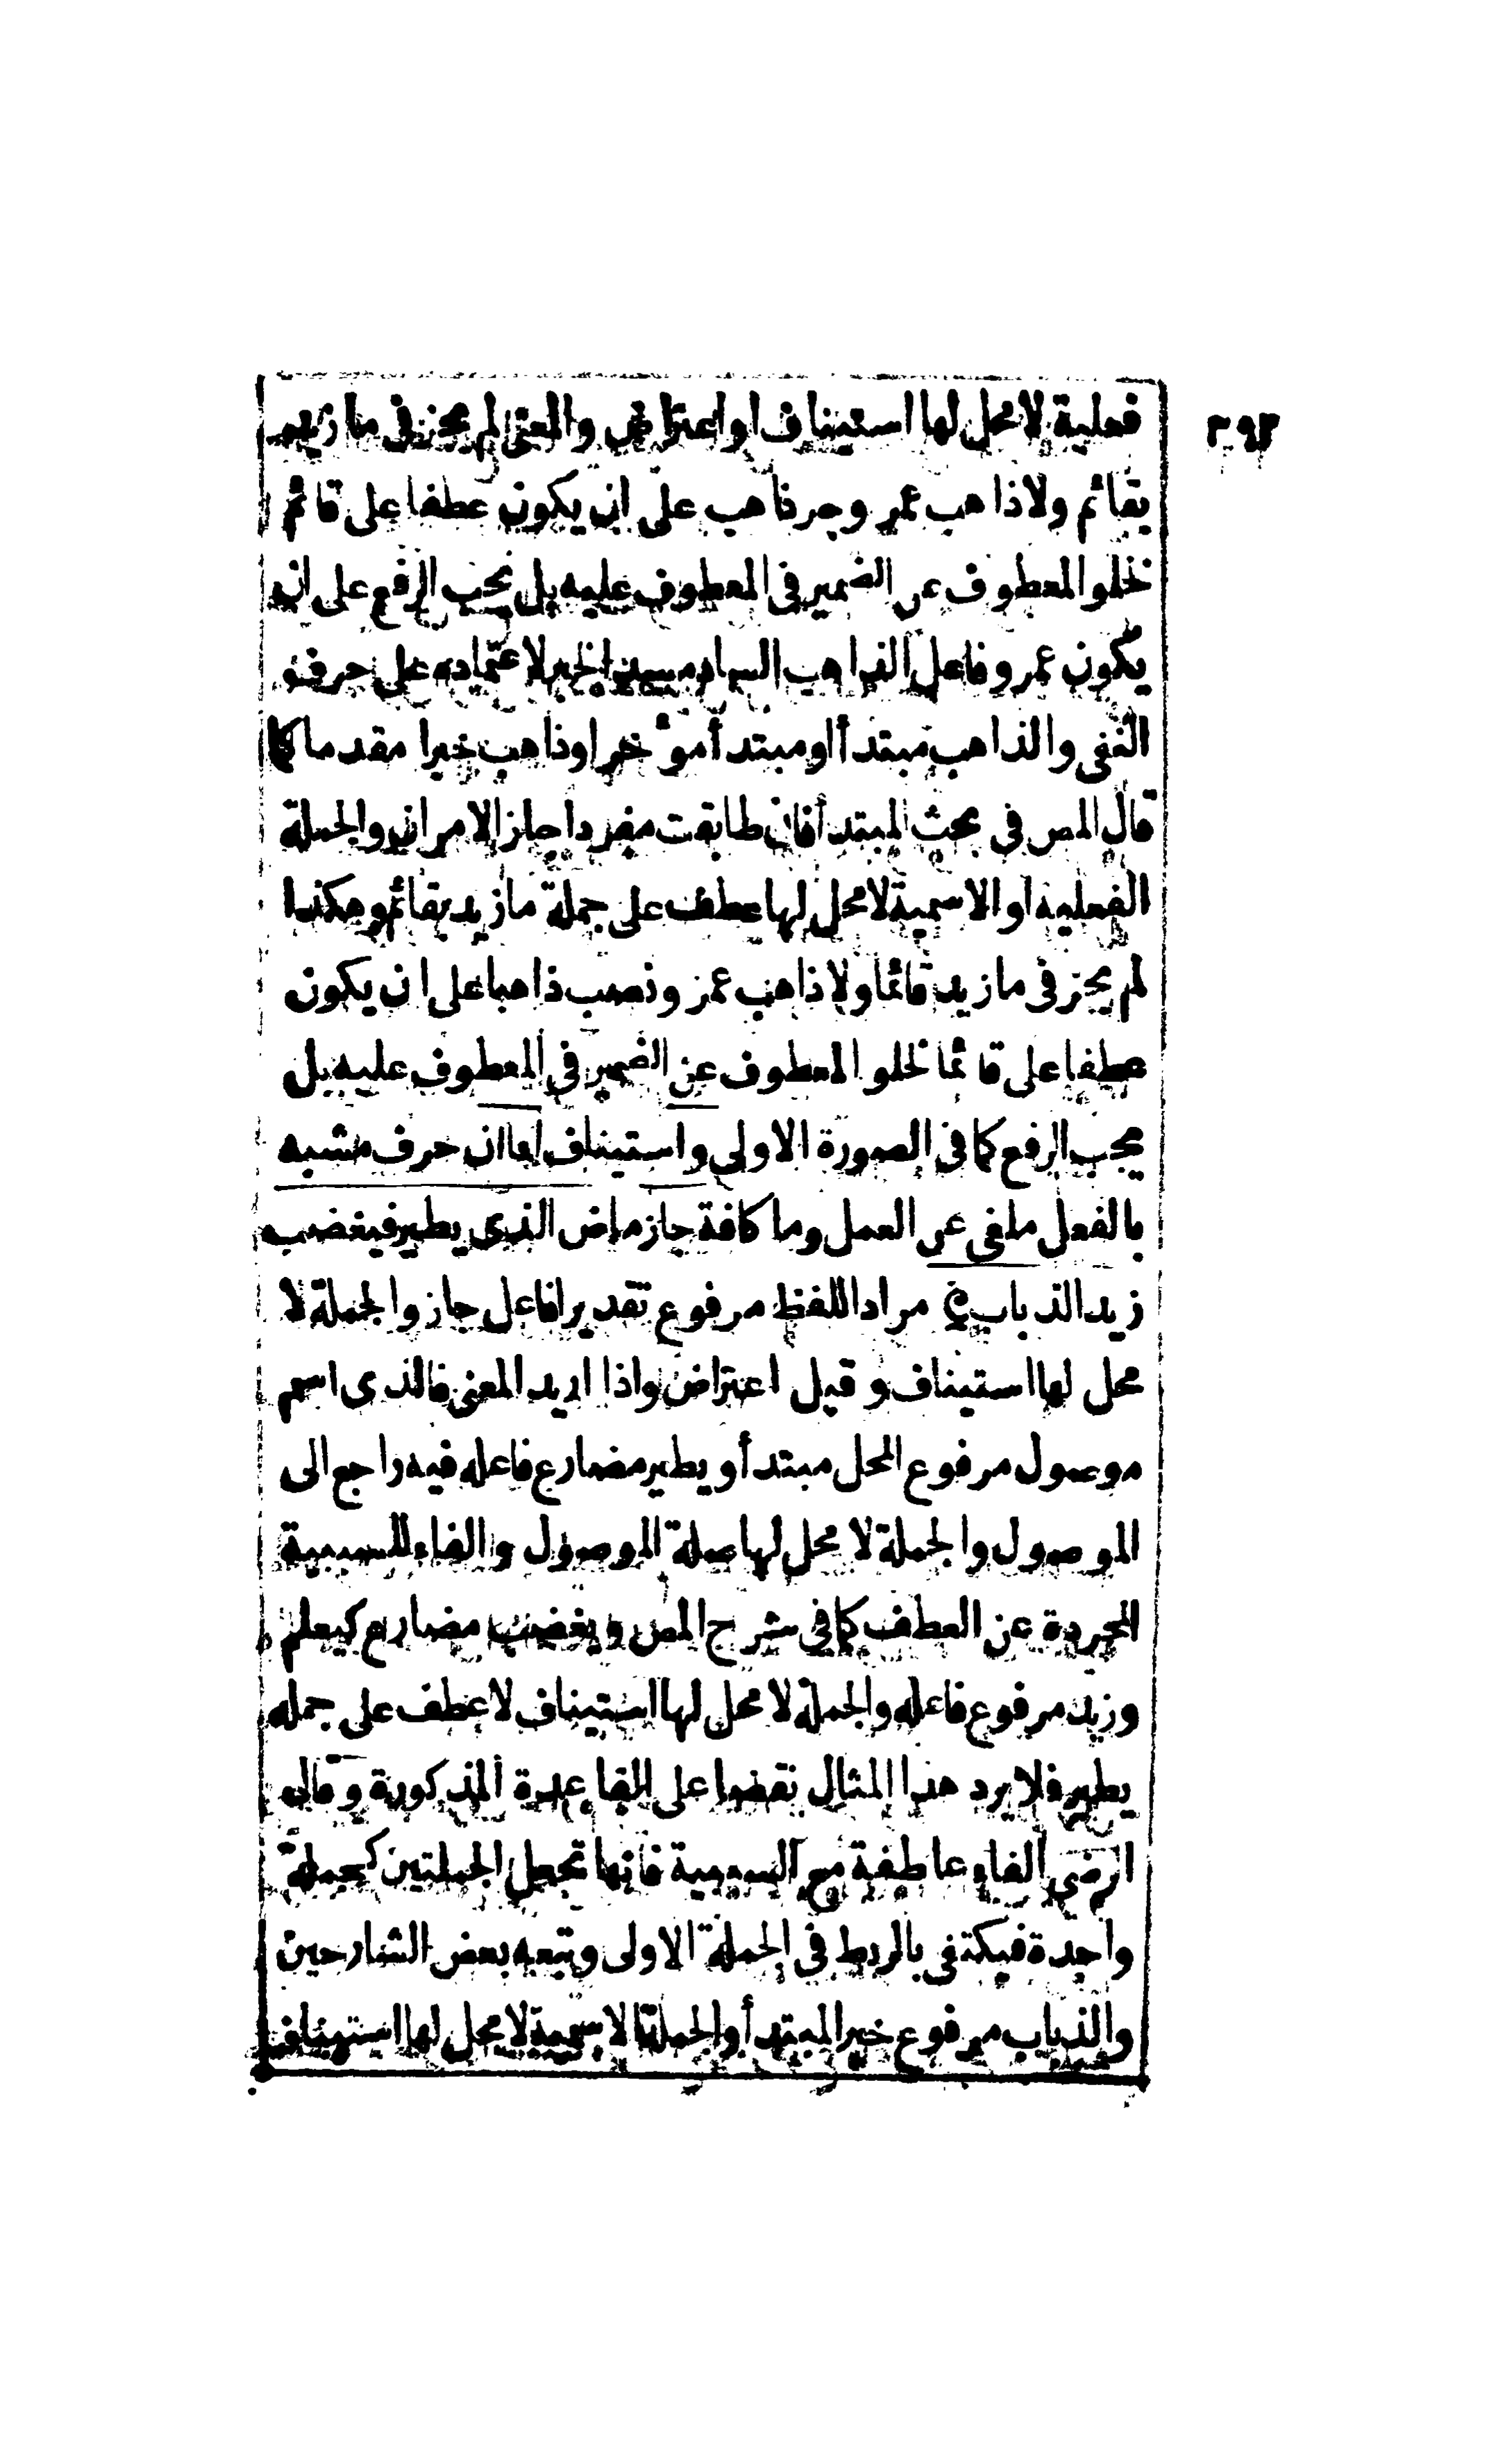 ٣٩٢
فعلية لا محل لها استيناف او اعتراض والمعنى لم يجز فى ما زيد
بقائم ولا ذاهب عمرو جر ذاهب على ان يكون عطفا على قائم
لخلو المعطوف عن الضمير فى المعطوف عليه بل يجب الرفع على ان
يكون عمرو فاعل الذاهب الساد مسد الخبر لاعتماده على حرف
النفى والذاهب مبتدأ او مبتدأ مؤخرا وذاهب خبرا مقدما كما
قال المص فى بحث المبتدأ فان طابقت مفردا جاز الامران والجملة
الفعلية او الاسمية لا محل لها عطف على جملة ما زيد بقائم وهكذا
لم يجز فى ما زيد قائما ولا ذاهب عمرو نصب ذاهبا على ان يكون
عطفا على قائما لخلو المعطوف عن الضمير فى المعطوف عليه بل
يجب الرفع كما فى الصورة الاولى واستيناف انما ان حرف مشبه
بالفعل ملغى عن العمل وما كافة جاز ماض الذى يطير فيغضب
زيد الذباب مراد اللفظ مرفوع تقديرا فاعل جاز والجملة لا
محل لها استيناف وقيل اعتراض واذا اريد المعنى فالذى اسم
موصول مرفوع المحل مبتدأ ويطير مضارع فاعله فيه راجع الى
الموصول والجملة لا محل لها صلة الموصول والفاء للسببية
المجردة عن العطف كما فى شرح المص ويغضب مضارع كيعلم
وزيد مرفوع فاعله والجملة لا محل لها استيناف لا عطف على جملة
يطير فلا يرد هذا المثال نقضا على القاعدة المذكورة وقال
الرضى الفاء عاطفة مع السببية فانها تجعل الجملتين كجملة
واحدة فيكتفى بالربط فى الجملة الاولى وتبعه بعض الشارحين
والذباب مرفوع خبر المبتدأ والجملة الاسمية لا محل لها استيناف